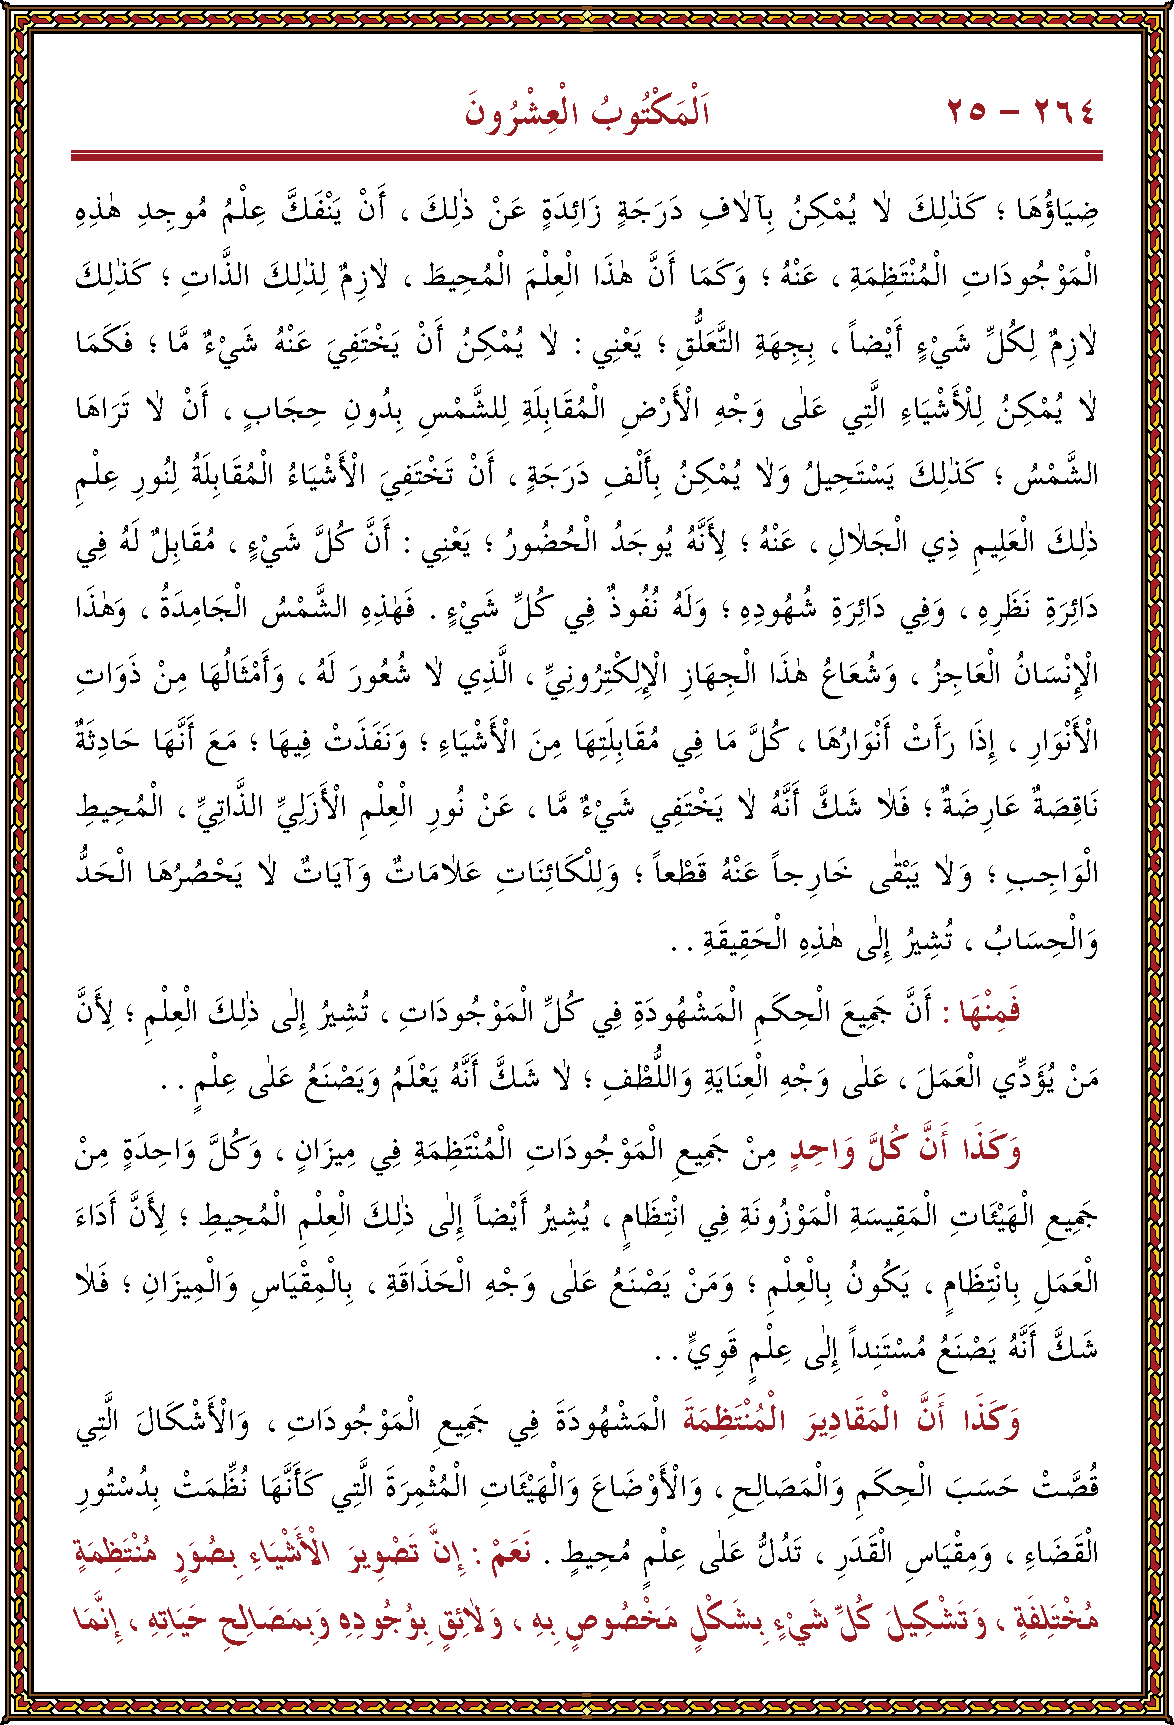 ٢٦٤ – ٢٥ اَلْمَكْتُوبُ الْعِشْرُونَ
ضِيَاؤُهَا ؛ كَذٰلِكَ لَا يُمْكِنُ بِآلَافِ دَرَجَةٍ زَائِدَةٍ عَنْ ذٰلِكَ ، أَنْ يَنْفَكَّ عِلْمُ مُوجِدِ هٰذِهِ
الْمَوْجُودَاتِ الْمُنْتَظِمَةِ ، عَنْهُ ؛ وَكَمَا أَنَّ هٰذَا الْعِلْمَ الْمُحِيطَ ، لَازِمٌ لِذٰلِكَ الذَّاتِ ؛ كَذٰلِكَ
لَازِمٌ لِكُلِّ شَيْءٍ أَيْضاً ، بِجِهَةِ التَّعَلُّقِ ؛ يَعْنِي : لَا يُمْكِنُ أَنْ يَخْتَفِيَ عَنْهُ شَيْءٌ مَّا ؛ فَكَمَا
لَا يُمْكِنُ لِلْأَشْيَاءِ الَّتِي عَلٰى وَجْهِ الْأَرْضِ الْمُقَابِلَةِ لِلشَّمْسِ بِدُونِ حِجَابٍ ، أَنْ لَا تَرَاهَا
الشَّمْسُ ؛ كَذٰلِكَ يَسْتَحِيلُ وَلَا يُمْكِنُ بِأَلْفِ دَرَجَةٍ ، أَنْ تَخْتَفِيَ الْأَشْيَاءُ الْمُقَابِلَةُ لِنُورِ عِلْمِ
ذٰلِكَ الْعَلِيمِ ذِي الْجَلَالِ ، عَنْهُ ؛ لِأَنَّهُ يُوجَدُ الْحُضُورُ ؛ يَعْنِي : أَنَّ كُلَّ شَيْءٍ ، مُقَابِلٌ لَهُ فِي
دَائِرَةِ نَظَرِهِ ، وَفِي دَائِرَةِ شُهُودِهِ ؛ وَلَهُ نُفُوذٌ فِي كُلِّ شَيْءٍ . فَهٰذِهِ الشَّمْسُ الْجَامِدَةُ ، وَهٰذَا
الْإِنْسَانُ الْعَاجِزُ ، وَشُعَاعُ هٰذَا الْجِهَازِ الْإِلِكْتِرُونِيِّ ، الَّذِي لَا شُعُورَ لَهُ ، وَأَمْثَالُهَا مِنْ ذَوَاتِ
الْأَنْوَارِ ، إِذَا رَأَتْ أَنْوَارُهَا ، كُلَّ مَا فِي مُقَابِلَتِهَا مِنَ الْأَشْيَاءِ ؛ وَنَفَذَتْ فِيهَا ؛ مَعَ أَنَّهَا حَادِثَةٌ
نَاقِصَةٌ عَارِضَةٌ ؛ فَلَا شَكَّ أَنَّهُ لَا يَخْتَفِي شَيْءٌ مَّا ، عَنْ نُورِ الْعِلْمِ الْأَزَلِيِّ الذَّاتِيِّ ، الْمُحِيطِ
الْوَاجِبِ ؛ وَلَا يَبْقٰى خَارِجاً عَنْهُ قَطْعاً ؛ وَلِلْكَائِنَاتِ عَلَامَاتٌ وَآيَاتٌ لَا يَحْصُرُهَا الْحَدُّ
وَالْحِسَابُ ، تُشِيرُ إِلٰى هٰذِهِ الْحَقِيقَةِ . .
فَمِنْهَا : أَنَّ جَمِيعَ الْحِكَمِ الْمَشْهُودَةِ فِي كُلِّ الْمَوْجُودَاتِ ، تُشِيرُ إِلٰى ذٰلِكَ الْعِلْمِ ؛ لِأَنَّ
مَنْ يُؤَدِّي الْعَمَلَ ، عَلٰى وَجْهِ الْعِنَايَةِ وَاللُّطْفِ ؛ لَا شَكَّ أَنَّهُ يَعْلَمُ وَيَصْنَعُ عَلٰى عِلْمٍ . .
وَكَذَا أَنَّ كُلَّ وَاحِدٍ مِنْ جَمِيعِ الْمَوْجُودَاتِ الْمُنْتَظِمَةِ فِي مِيزَانٍ ، وَكُلَّ وَاحِدَةٍ مِنْ
جَمِيعِ الْهَيْئَاتِ الْمَقِيسَةِ الْمَوْزُونَةِ فِي انْتِظَامٍ ، يُشِيرُ أَيْضاً إِلٰى ذٰلِكَ الْعِلْمِ الْمُحِيطِ ؛ لِأَنَّ أَدَاءَ
الْعَمَلِ بِانْتِظَامٍ ، يَكُونُ بِالْعِلْمِ ؛ وَمَنْ يَصْنَعُ عَلٰى وَجْهِ الْحَذَاقَةِ ، بِالْمِقْيَاسِ وَالْمِيزَانِ ؛ فَلَا
شَكَّ أَنَّهُ يَصْنَعُ مُسْتَنِداً إِلٰى عِلْمٍ قَوِيٍّ . .
وَكَذَا أَنَّ الْمَقَادِيرَ الْمُنْتَظِمَةَ الْمَشْهُودَةَ فِي جَمِيعِ الْمَوْجُودَاتِ ، وَالْأَشْكَالَ الَّتِي
قُصَّتْ حَسَبَ الْحِكَمِ وَالْمَصَالِحِ ، وَالْأَوْضَاعَ وَالْهَيْئَاتِ الْمُثْمِرَةَ الَّتِي كَأَنَّهَا نُظِّمَتْ بِدُسْتُورِ
الْقَضَاءِ ، وَمِقْيَاسِ الْقَدَرِ ، تَدُلُّ عَلٰى عِلْمٍ مُحِيطٍ . نَعَمْ : إِنَّ تَصْوِيرَ الْأَشْيَاءِ بِصُوَرٍ مُنْتَظِمَةٍ
مُخْتَلِفَةٍ ، وَتَشْكِيلَ كُلِّ شَيْءٍ بِشَكْلٍ مَخْصُوصٍ بِهِ ، وَلَائِقٍ بِوُجُودِهِ وَبِمَصَالِحِ حَيَاتِهِ ، إِنَّمَا